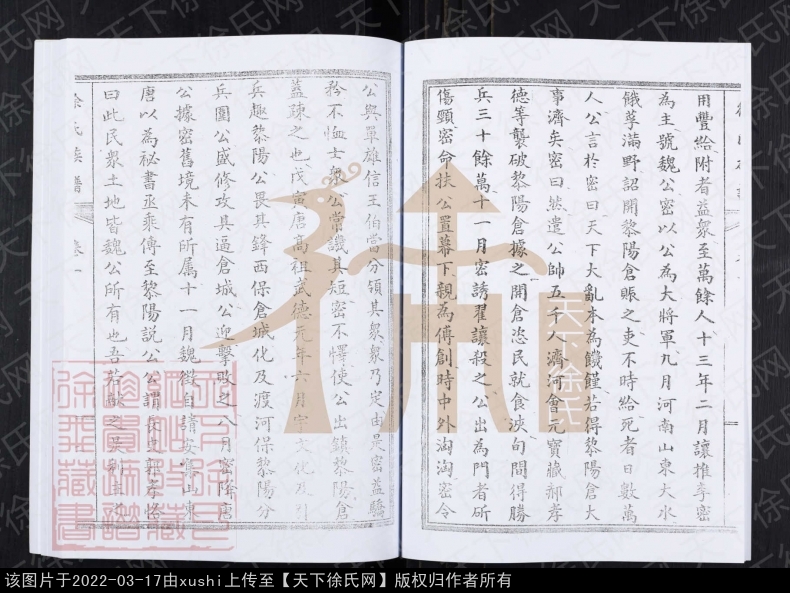 用豐給附者益衆至萬餘人十三年二月讓推李密
為主號魏公密以公為大將軍九月河南山東大水
餓莩滿野詔開黎陽倉賑之吏不時給死者日數萬
人公言於密曰天下大亂本為饑饉若得黎陽倉大
事濟矣密曰然遣公帥五千人濟河會元寶藏郝孝
德等襲破黎陽倉據之開倉恣民就食浹旬間得勝
兵三十餘萬十一月密誘翟讓殺之公出為門者斫
傷頸密命扶公置幕下親為傅創時中外洶洶密令
公與單雄信王伯當分領其衆衆乃定由是密益驕
矜不恤士衆公常譏其短密不懌使公出鎮黎陽倉
益疎之也戊寅唐高祖武德元年六月宇文化及引
兵趣黎陽公畏其鋒西保倉城化及渡河保黎陽分
兵圍公盛修攻具逼倉城公迎擊敗之八月密降唐
公據密舊境未有所屬十一月魏徵自請安集山東
唐以為祕書丞乘傳至黎陽説公公謂長史郭孝恪
曰此民衆土地皆魏公所有也吾若獻之
徐氏族譜 卷一
天下徐氏
天下徐氏网
该图片于2022-03-17由xushi上传至【天下徐氏网】版权归作者所有